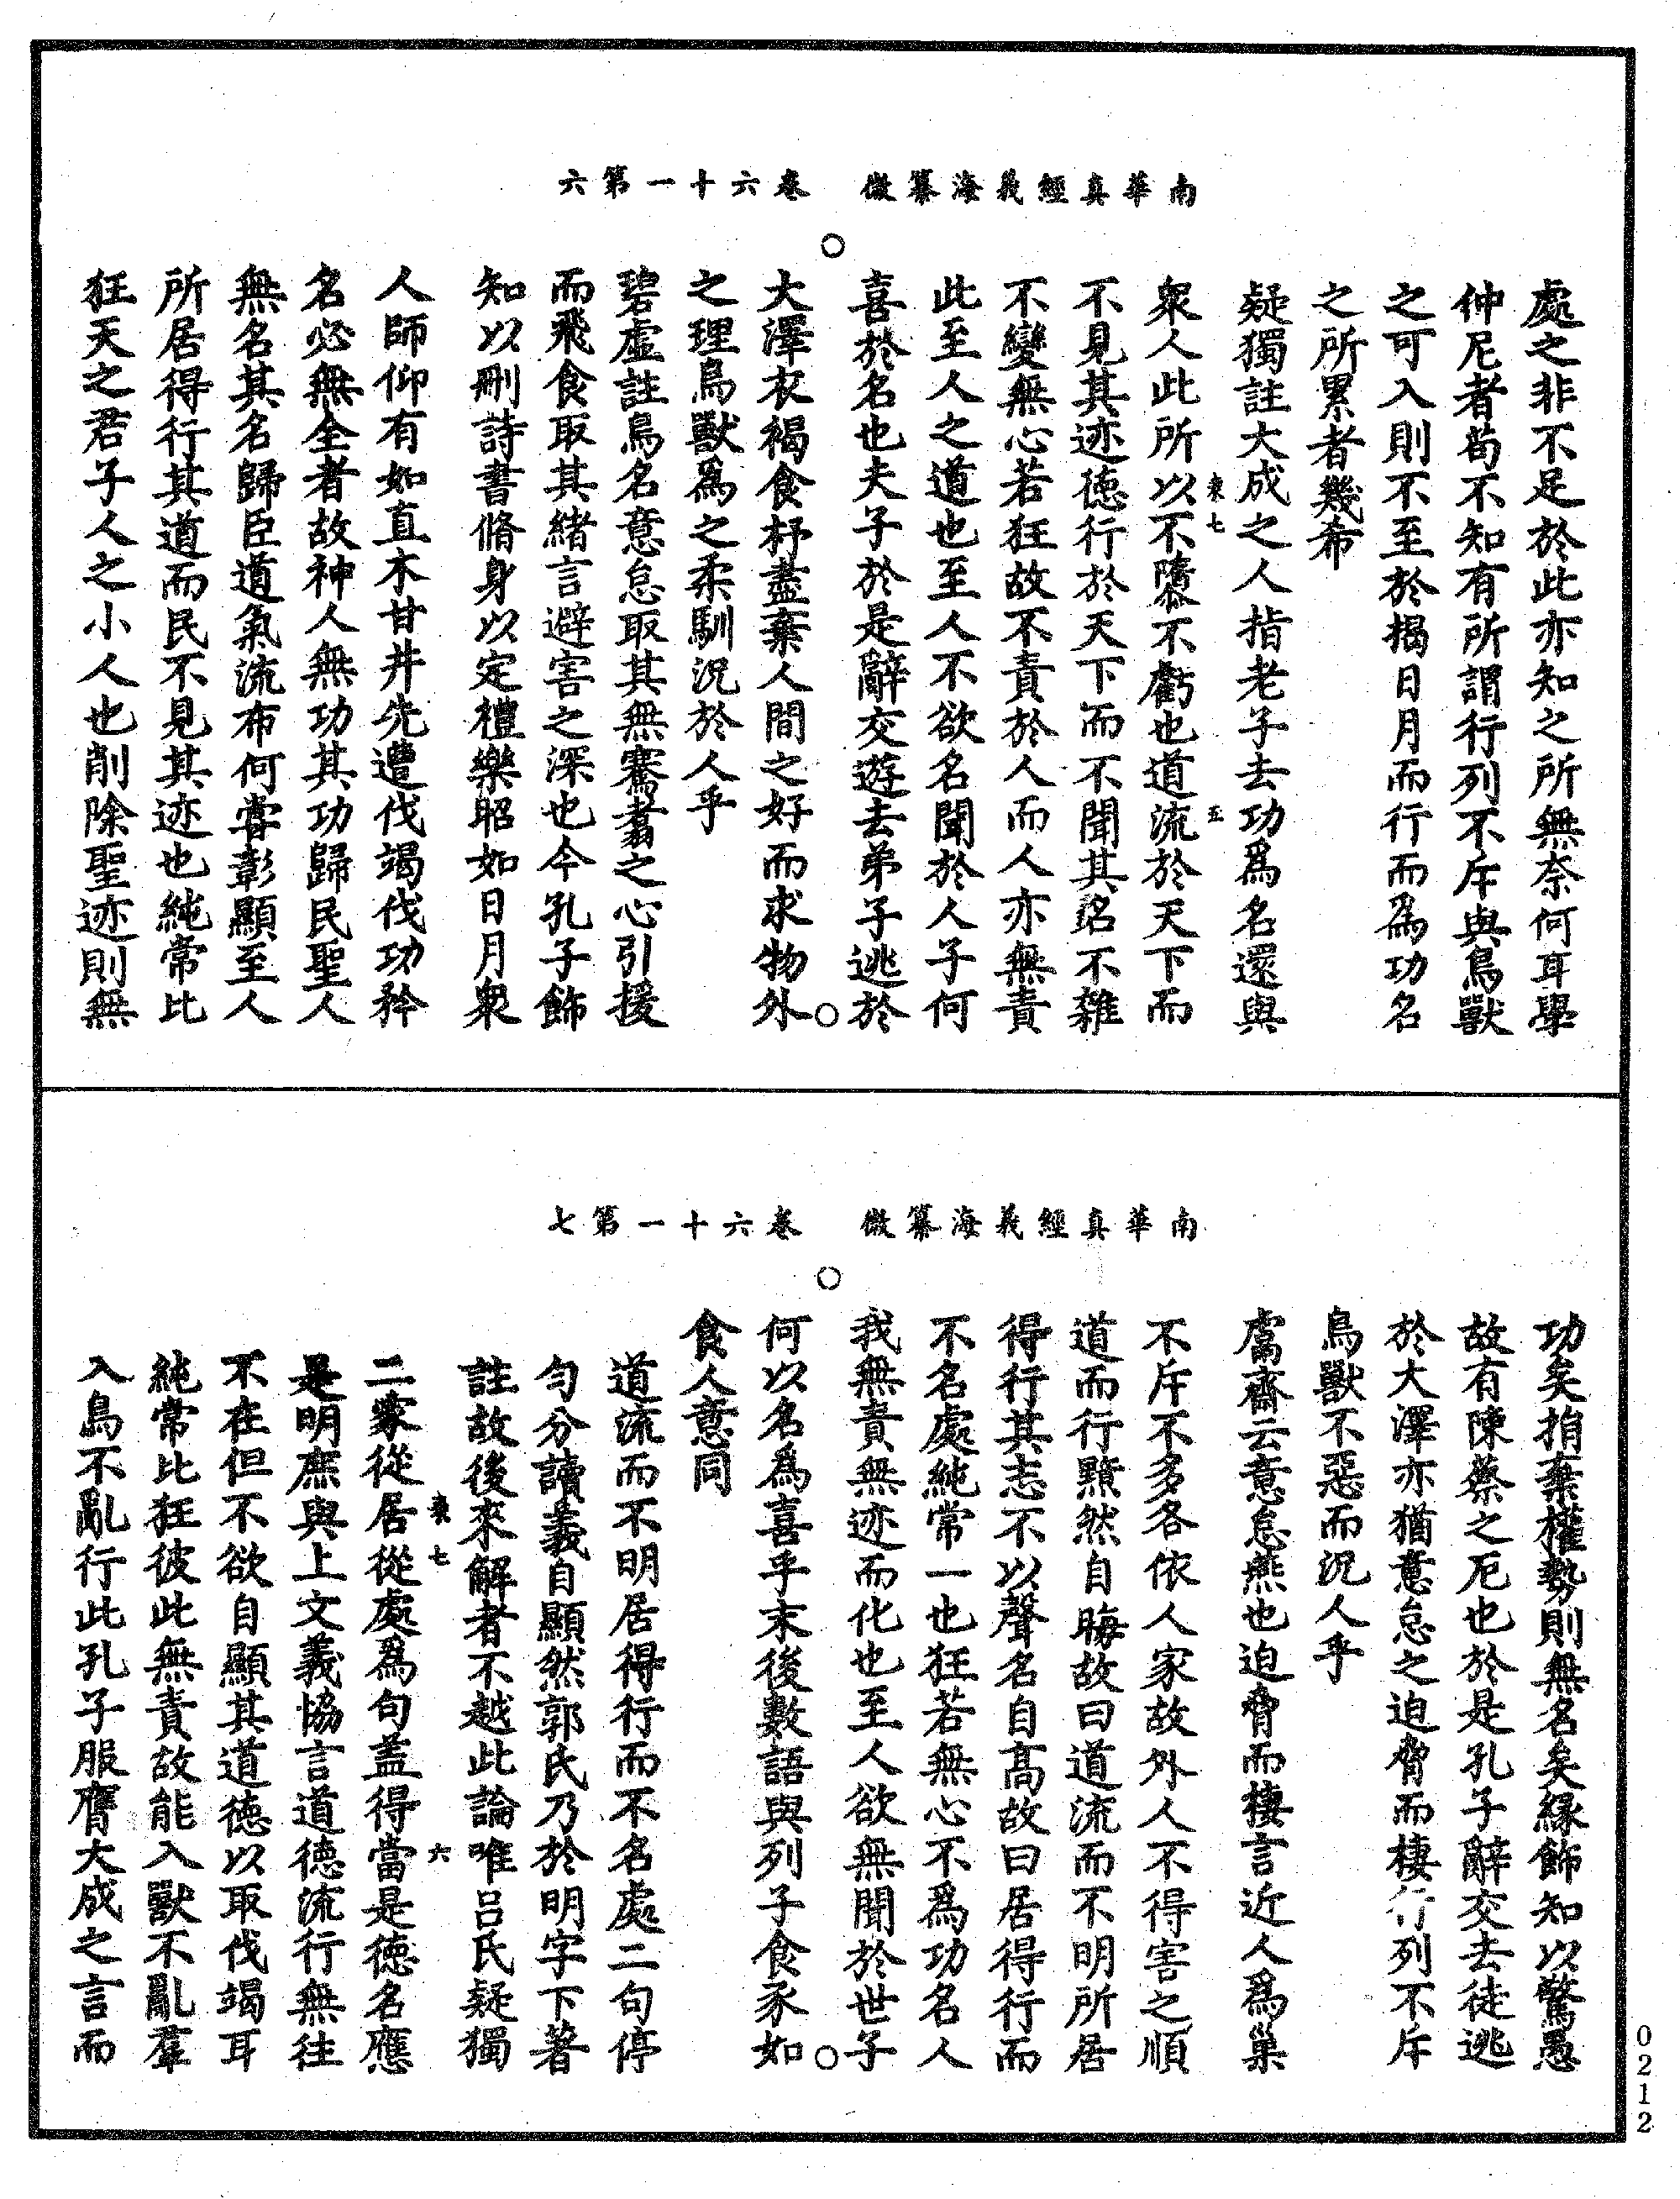 南華真經義海纂微　卷六十一第六
處之非不足於此亦知之所無奈何耳學
仲尼者苟不知有所謂行列不斥與鳥獸
之可入則不至於揭日月而行而為功名
之所累者幾希
疑獨註大成之人指老子去功為名還與
衆人此所以不隳不虧也道流於天下而
不見其迹德行於天下而不聞其名不雜
不變無心若狂故不責於人而人亦無責
此至人之道也至人不欲名聞於人子何
喜於名也夫子於是辭交遊去弟子逃於
大澤衣褐食杼盡棄人間之好而求物外
之理鳥獸為之柔馴況於人乎
碧虛註鳥名意怠取其無騫翥之心引援
而飛食取其緒言避害之深也今孔子飾
知以刪詩書脩身以定禮樂昭如日月衆
人師仰有如直木甘井先遭伐竭伐功矜
名必無全者故神人無功其功歸民聖人
無名其名歸臣道氣流布何嘗彰顯至人
所居得行其道而民不見其迹也純常比
狂天之君子人之小人也削除聖迹則無
南華真經義海纂微　卷六十一第七
功矣捐棄權勢則無名矣緣飾知以驚愚
故有陳蔡之厄也於是孔子辭交去徒逃
於大澤亦猶意怠之迫脅而棲行列不斥
鳥獸不惡而況人乎
鬳齋云意怠燕也迫脅而棲言近人為巢
不斥不多各依人家故外人不得害之順
道而行黙然自晦故曰道流而不明所居
得行其志不以聲名自高故曰居得行而
不名處純常一也狂若無心不為功名人
我無責無迹而化也至人欲無聞於世子
何以名為喜乎末後數語與列子食豕如
食人意同
道流而不明居得行而不名處二句停
勻分讀義自顯然郭氏乃於明字下著
註故後來解者不越此論唯呂氏疑獨
二家從居從處為句盖得當是德名應
是明庶與上文義協言道德流行無往
不在但不欲自顯其道德以取伐竭耳
純常比狂彼此無責故能入獸不亂羣
入鳥不亂行此孔子服膺大成之言而
衆七
五
衆七
六
0212